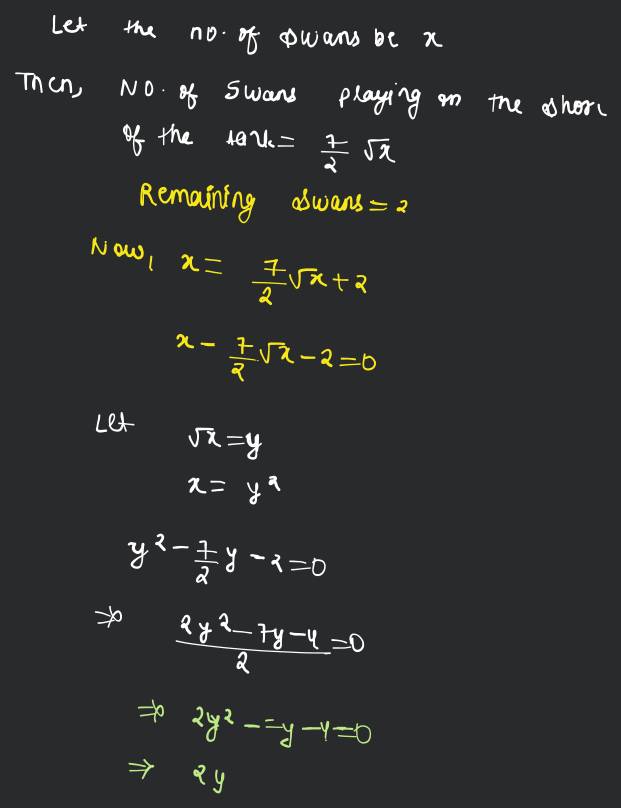 Let the no. of swans be x
Then, No. of Swans playing on the shore
of the tank = 7/2 √x
Remaining swans = 2
Now, x = 7/2 √x + 2
x - 7/2 √x - 2 = 0
Let √x = y
x = y²
y² - 7/2 y - 2 = 0
⇒ (2y² - 7y - 4)/2 = 0
⇒ 2y² - =y - 4 = 0
⇒ 2y